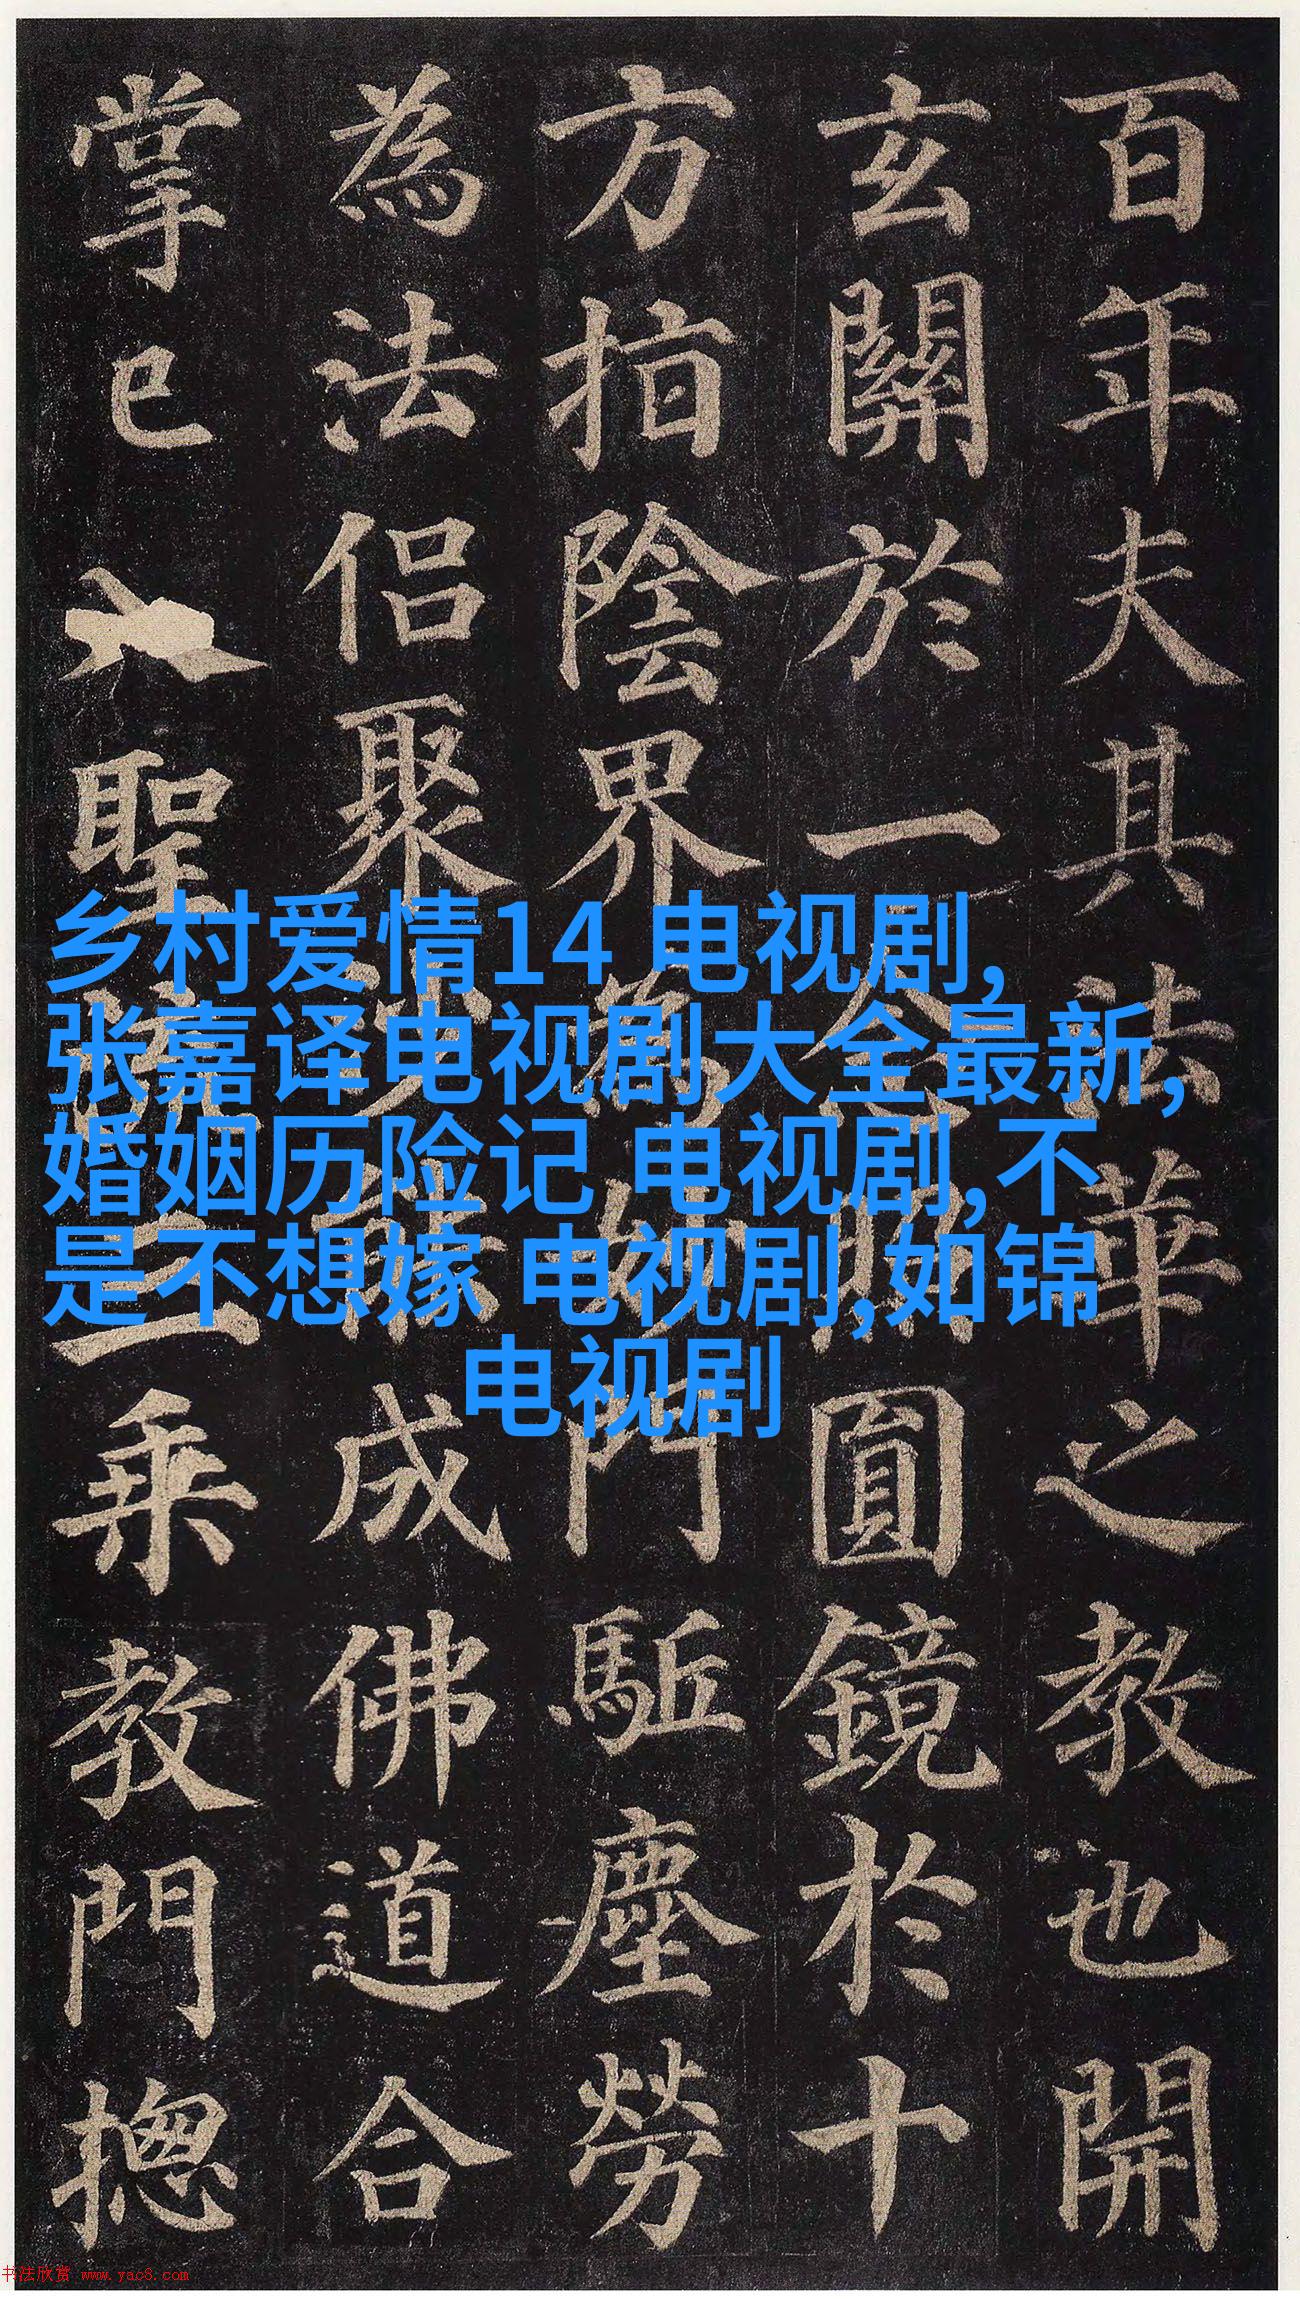 百年夫其法華之教也開
玄關於一念照圓鏡於十
方指陰界為妙門駈塵勞
為法侶聚沙能成佛道合
掌已入聖流三乘教門揔
乡村爱情14 电视剧,
张嘉译电视剧大全最新,
婚姻历险记 电视剧,不
是不想嫁 电视剧,如锦
电视剧
书法欣赏 www.yac8.com